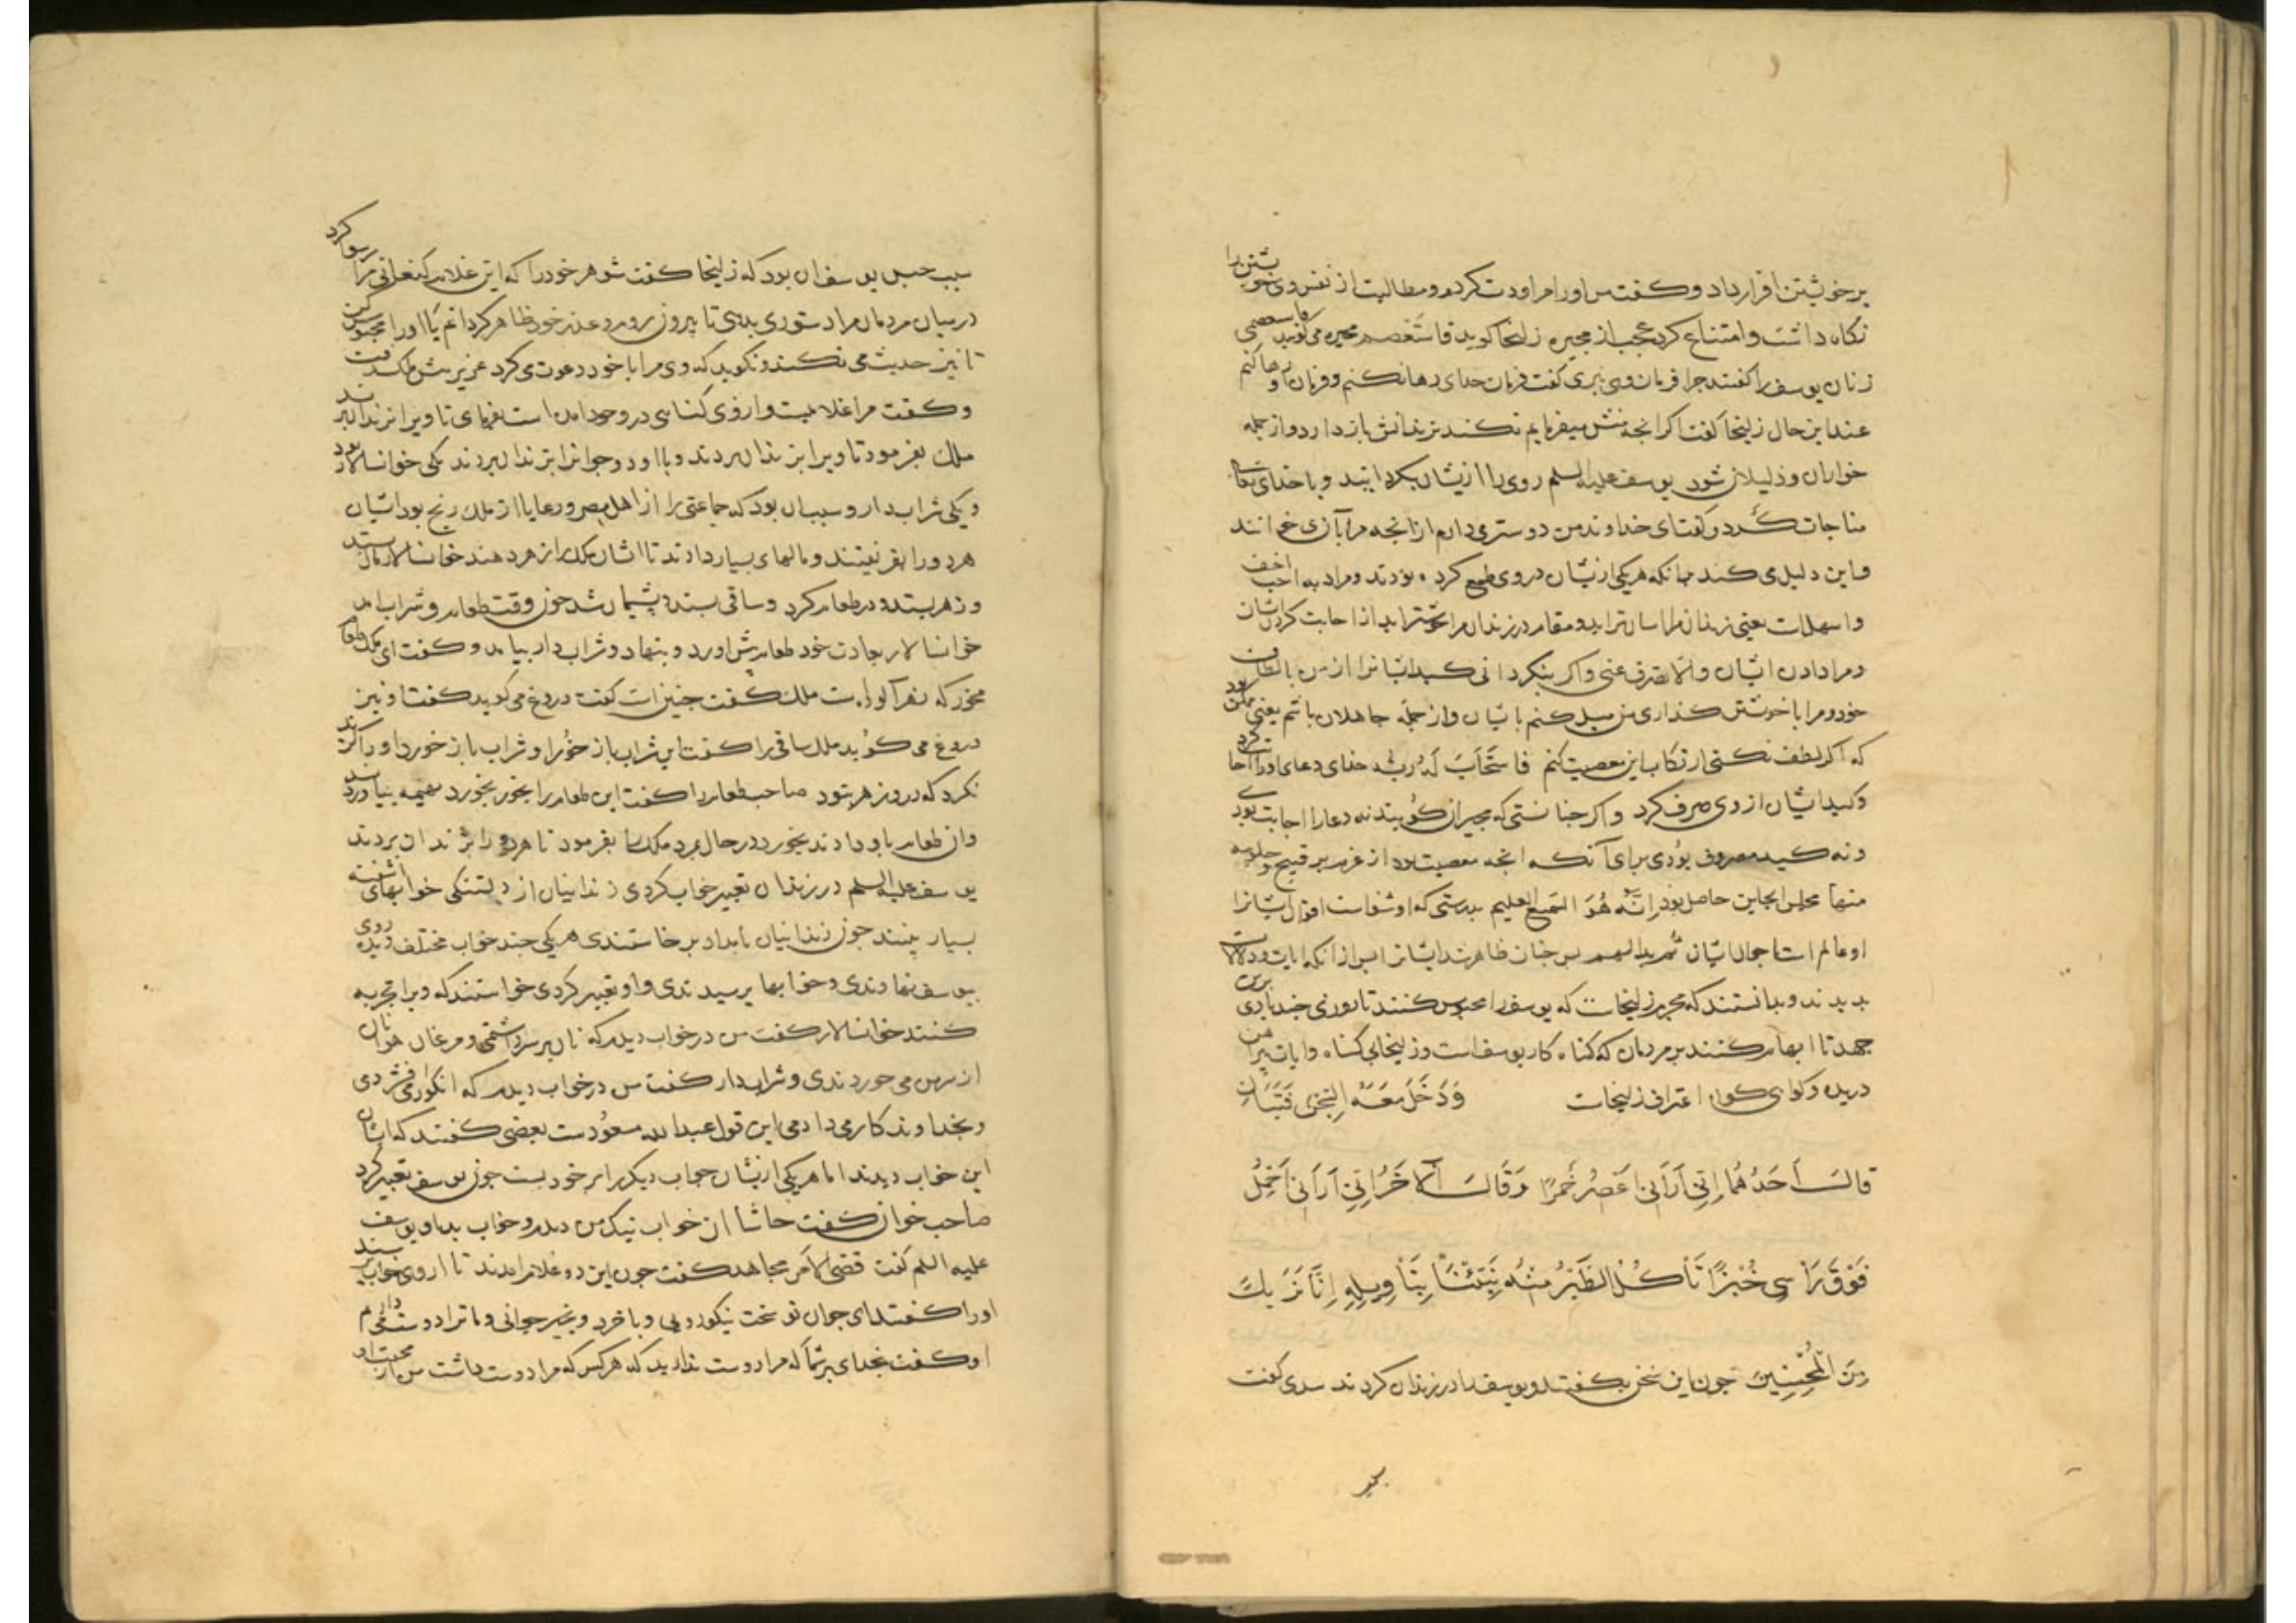 برخویشتن اقرار داد و کفت من اورا مراودت کردم و مطالبت از نفس وی خویشتن را
نکاه داشت و امتناع کرد عجب از مجبره زلیخا کوید فاستعصم مجبره می کویند فاستعصی
زنان یوسف را کفتند چرا فرمان وی نبری کفت فرمان خدای رها نکنم و فرمان او رها کنم
عند این حال زلیخا کفت اکر انچه منش میفرمایم نکند بزندانش بازدارد و از جمله
خواران و ذلیلان شود یوسف علیه السلم روی را از یشان بکردانید و با خدای تعالی
مناجات کرد و کفت ای خداوند من دوستر می دارم از انچه مرا بآن می خوانند
و این دلیل می کند بدانکه هر یکی از یشان در وی طمع کرده بودند و مراد به احب اخف
و اسهلات یعنی زندان مرا اسان تر اید و مقام در زندان مرا خوشتر اید از اجابت کردن ایشان
و مراد دادن ایشان و الا تصرف عنی و اکر بنکردانی کید ایشانرا از من بالطاف
خود و مرا با خویشتن کذاری من میل کنم بایشان و از جمله جاهلان باشم یعنی ممکن بود
که اکر لطف نکنی ارتکاب این معصیت کنم فاستجاب له ربه خدای دعای اورا اجابت کرد
و کید ایشان از وی صرف کرد و اکر چنانستی که مجبران کویند نه دعا را اجابت بودی
و نه کید مصروف بودی برای آنکه انچه معصیت بود از عزم بر قبیح و جلوسه
منها مجلس الخاین حاصل بود اِنَّهُ هُوَ السَّمیعُ العلیم بدرستی که او شنواست اقوال ایشانرا
او عالم است باحوال ایشان ثم بدا لهم پس چنان ظاهر شد ایشانرا پس از انکه ایات و دلالات
بدیدند و بدانستند که مجرم زلیخاست که یوسف را محبوس کنند تا روزی چند برین
جهد تا ابهام کنند بر مردمان که کناه کار یوسف است و زلیخا بی کناه و ایات پیراهن
دریده و کواهی کودک اعتراف زلیخاست وَدَخَلَ مَعَهُ السِّجْنَ فَتَیَانِ
قَالَ اَحَدُهُمَا اِنِّی اَرَانِی اَعْصِرُ خَمْرًا وَقَالَ الْاٰخَرُ اِنِّی اَرَانِی اَحْمِلُ
فَوْقَ رَاْسِی خُبْزًا تَأْکُلُ الطَّیْرُ مِنْهُ نَبِّئْنَا بِتَأْوِیلِهِ اِنَّا نَرٰیكَ
مِنَ الْمُحْسِنِینَ چون این سخن بکفتند و یوسف را در زندان کردند سدی کفت
سبب حبس یوسف ان بود که زلیخا کفت شوهر خود را که این غلام کنعانی مرا رسوا کرد
در میان مردمان مرا دستوری بدهی تا بیرون روم و عذر خود ظاهر کردانم یا اورا محبوس کن
تا نیز حدیث می نکند و نکوید که وی مرا با خود دعوت می کرد عزیز پیش ملک رفت
و کفت مرا غلامیست و از وی کناهی در وجود امده است بفرمای تا ویرا بزندان برند
ملک بفرمود تا ویرا بزندان بردند و با او دو جوانرا بزندان بردند یکی خوانسلار بود
و یکی شرابدار و سبب ان بود که جماعتی را از اهل مصر و رعایا از ملک رنج بود ایشان
هر دو را بفریفتند و مالهای بسیار دادند تا ایشان ملک را زهر دهند خوانسالار مال بستد
و زهر بستد و در طعام کرد و ساقی بستد و پشیمان شد چون وقت طعام و شراب امد
خوانسالار بعادت خود طعام پیش اورد و بنهاد و شراب دار بیامد و کفت ای ملک طعام
مخور که زهر آلودست ملک کفت چنین است کفت دروغ می کوید کفتا و نیز
دروغ می کوید ملک ساقی را کفت این شراب باز خور او شراب باز خورد او را کزند
نکرد که درو زهر نبود صاحب طعام را کفت این طعام را بخور نخورد بهیمه بیاوردند
وان طعام باو دادند بخورد در حال بمرد ملک بفرمود تا هر دو را بزندان بردند
یوسف علیه السلم در زندان تعبیر خواب کردی زندانیان از دلتنکی خوابهای آشفته
بسیار بینند چون زندانیان بامداد برخاستندی هر یکی چند خواب مختلف دیده
بیوسف نهادندی و خوابها پرسیدندی و او تعبیر کردی خواستند که ویرا تجربه
کنند خوانسالار کفت من در خواب دیدم که نان بر سر داشتمی و مرغان هوا نان
از سر من می خوردندی و شرابدار کفت من در خواب دیدم که انکور می فشردمی
و بخداوندکار می دادمی این قول عبدالله مسعودست بعضی کفتند که ایشان
این خواب دیدند اما هر یکی از یشان خواب دیکر بر خود بست چون یوسف تعبیر کرد
صاحب خوان کفت حاشا ان خواب نیک من دیدم و خواب بد او یوسف
علیه السلم کفت قضی الامر مجاهد کفت چون این دو غلام امدند تا از وی خواب پرسند
اورا کفتند ای جوان تو سخت نیکورویی و با خرد و خیر جوانی و ما ترا دوست می داریم
او کفت بخدای بر شما که مرا دوست ندارید که هر کس که مرا دوست داشت من از محبت او